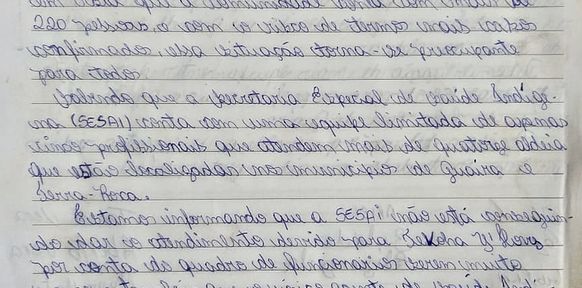 em vista que a comunidade conta com mais de
220 pessoas, e com o risco de termos mais casos
confirmados, essa situação torna-se preocupante
para todos
Sabendo que a Secretaria Especial de Saúde Indíge-
na (SESAI) conta com uma equipe limitada de apenas
cinco profissionais que atendem mais de quatorze aldeia
que estão localizadas nos município de Guaíra e
Terra-Roca.
Estamos informando que a SESAI não está conseguin-
do dar o atendimento devido para Tekoha Y Hovy
por conta do quadro de funcionários serem muito